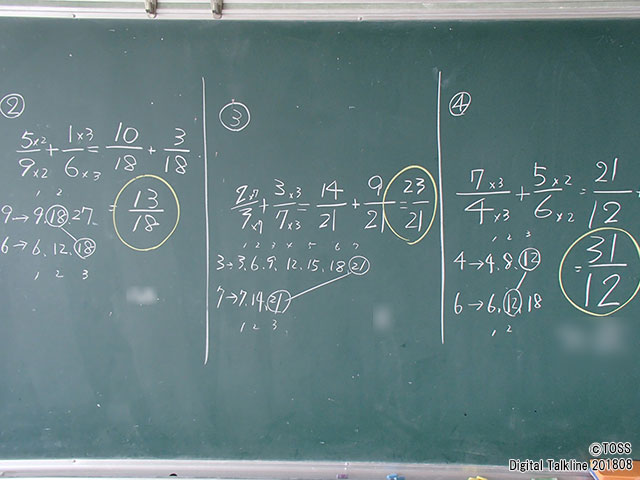 ②
5×2/9×2 + 1×3/6×3 = 10/18 + 3/18
= 13/18
1 2
9→9.18 27
6→6.12.18
1 2 3
③
2×7/3×7 + 3×3/7×3 = 14/21 + 9/21 = 23/21
1 2 3 4 5 6 7
3→3.6.9.12.15.18 21
7→7.14.21
1 2 3
④
7×3/4×3 + 5×2/6×2 = 21/12
= 31/12
1 2 3
4→4.8.12
6→6.12.18
1 2
©TOSS
Digital Talkline 201808